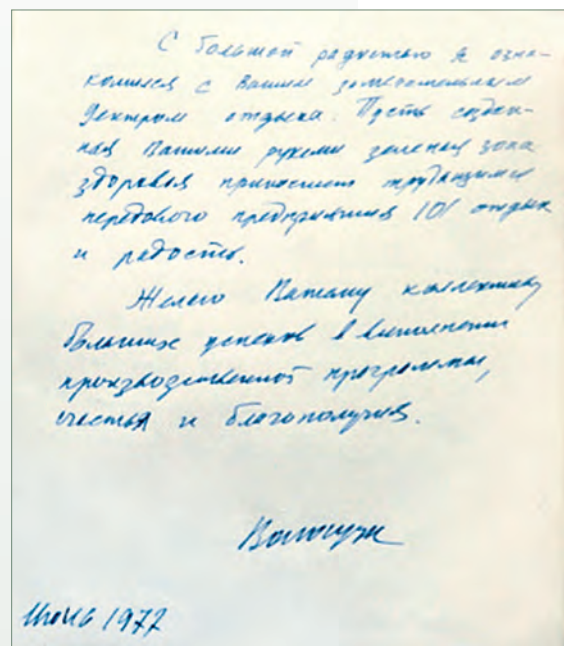 С большой радостью я озна-
комился с Вашим замечательным
центром отдыха. Пусть создан-
ная Вашими руками зеленая зона
здоровья приносит трудящимся
передового предприятия 101 отдых
и радость.
Желаю Вашему коллективу
больших успехов в выполнении
производственной программы,
счастья и благополучия.
1972